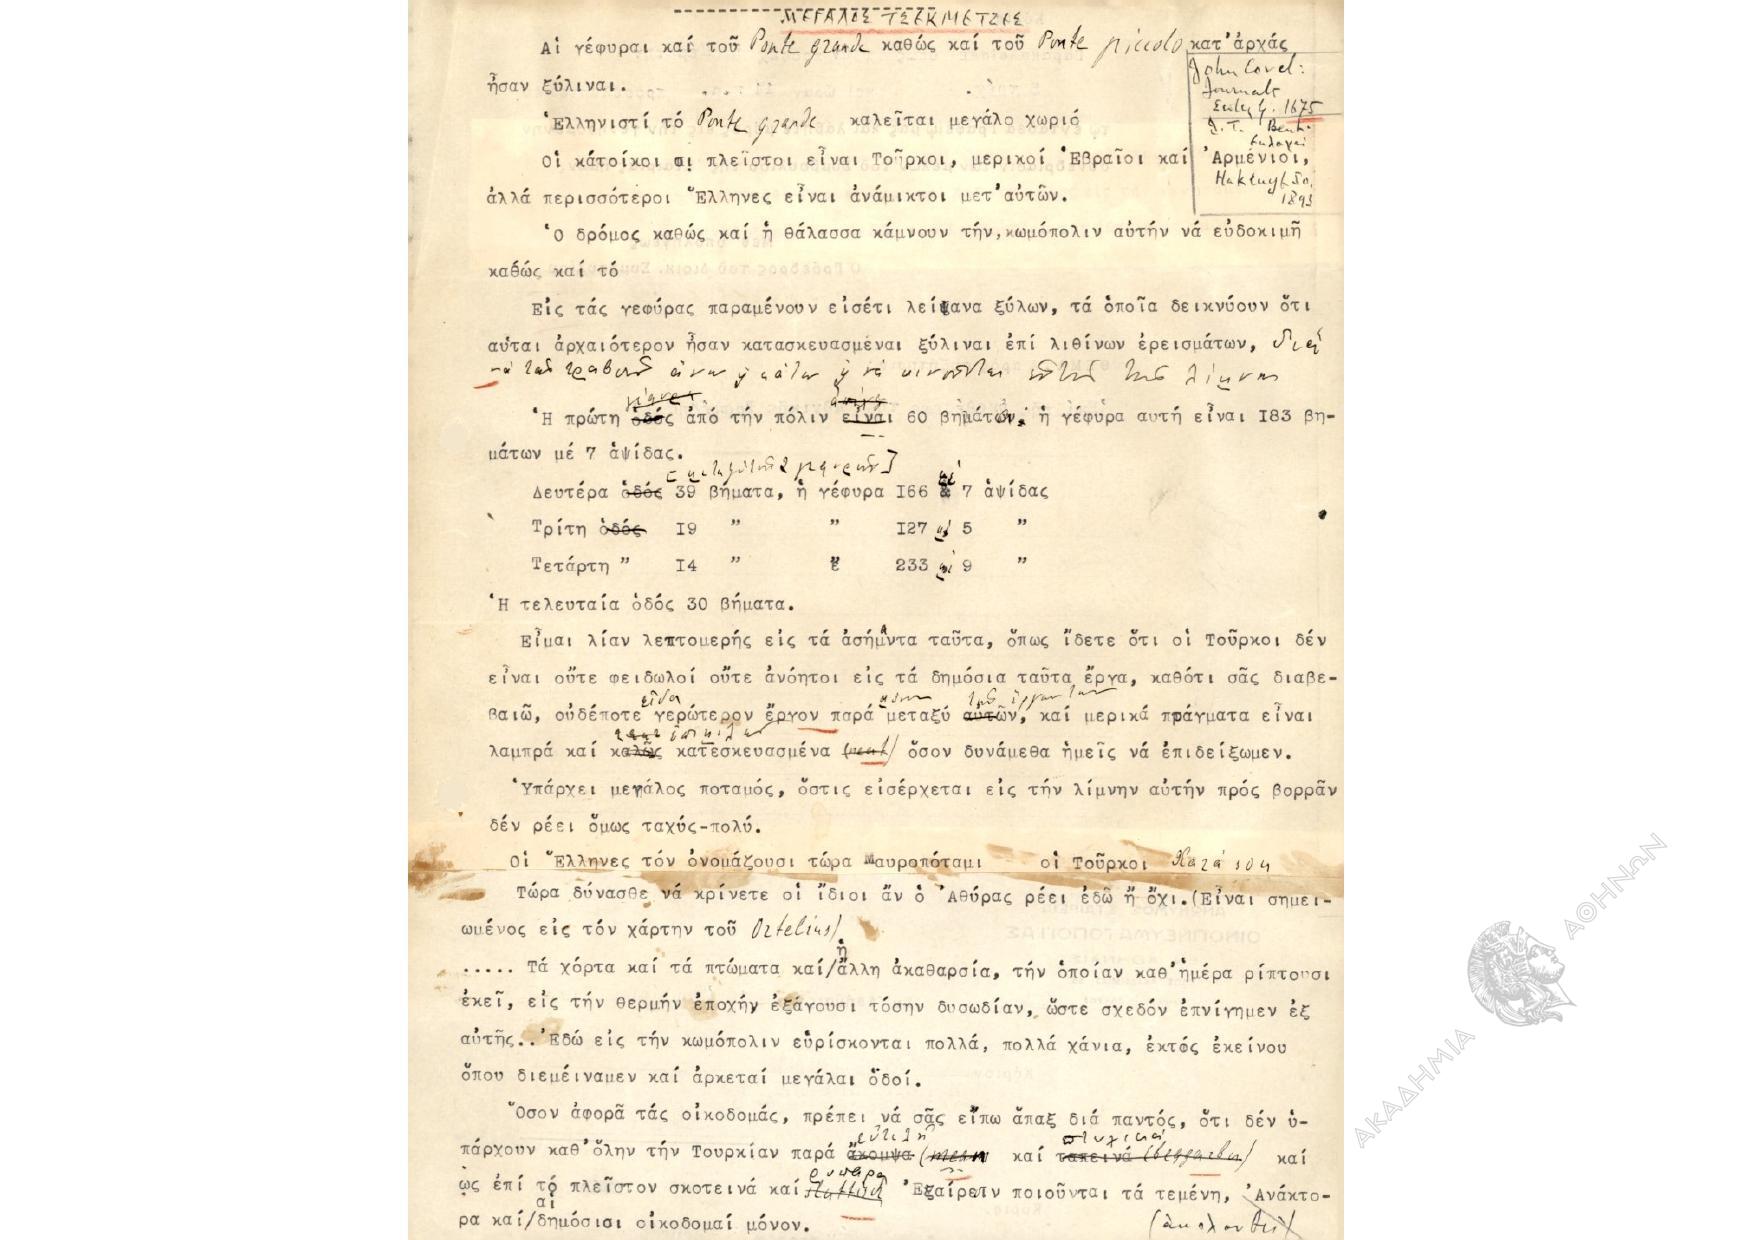 ΜΕΓΑΛΟΣ ΤΣΕΚΜΕΤΖΕΣ
Αἱ γέφυραι καί τοῦ Ponte grande καθώς καί τοῦ Ponte piccolo κατ'ἀρχάς
ἦσαν ξύλιναι.
John Covel:
Journals
Early f. 1675
J. T. Bent.
Hakluyt So.
1893
Ἑλληνιστί τό Ponte grande καλεῖται μεγάλο χωριό
Οἱ κάτοικοι οἱ πλεῖστοι εἶναι Τοῦρκοι, μερικοί Ἑβραῖοι καί Ἀρμένιοι,
ἀλλά περισσότεροι Ἕλληνες εἶναι ἀνάμικτοι μετ'αὐτῶν.
Ὁ δρόμος καθώς καί ἡ θάλασσα κάμνουν τήν κωμόπολιν αὐτήν νά εὐδοκιμῇ
καθώς καί τό
Εἰς τάς γεφύρας παραμένουν εἰσέτι λείψανα ξύλων, τά ὁποῖα δεικνύουν ὅτι
αὗται ἀρχαιότερον ἦσαν κατασκευασμέναι ξύλιναι ἐπί λιθίνων ἐρεισμάτων, διά
νά τάς τραβοῦν ἄνω ἤ κάτω ἤ νά κινοῦνται τῆς λίμνης
Ἡ πρώτη ὁδός ἀπό τήν πόλιν εἶναι 60 βημάτων, ἡ γέφυρα αυτή εἶναι 183 βη-
μάτων μέ 7 ἁψίδας.
Δευτέρα ὁδός 39 βήματα, ἡ γέφυρα 166 καί 7 ἁψίδας
Τρίτη ὁδός 19 " " 127 καί 5 "
Τετάρτη " 14 " " 233 καί 9 "
Ἡ τελευταία ὁδός 30 βήματα.
Εἶμαι λίαν λεπτομερής εἰς τά ἀσήμαντα ταῦτα, ὅπως ἴδετε ὅτι οἱ Τοῦρκοι δέν
εἶναι οὔτε φειδωλοί οὔτε ἀνόητοι εἰς τά δημόσια ταῦτα ἔργα, καθότι σᾶς διαβε-
εἶδα
βαιῶ, οὐδέποτε γερώτερον ἔργον παρά μεταξύ αὐτῶν, καί μερικά πράγματα εἶναι
λαμπρά καί καλῶς κατεσκευασμένα (neat) ὅσον δυνάμεθα ἡμεῖς νά ἐπιδείξωμεν.
Ὑπάρχει μεγάλος ποταμός, ὅστις εἰσέρχεται εἰς τήν λίμνην αὐτήν πρός βορρᾶν
δέν ρέει ὅμως ταχύς-πολύ.
Οἱ Ἕλληνες τόν ὀνομάζουσι τώρα Μαυροπόταμι οἱ Τοῦρκοι Καρά σου
Τώρα δύνασθε νά κρίνετε οἱ ἴδιοι ἄν ὁ Ἀθύρας ρέει ἐδῶ ἤ ὄχι.(Εἶναι σημει-
ωμένος εἰς τόν χάρτην τοῦ Ortelius)
ἡ
..... Τά χόρτα καί τά πτώματα καί/ἄλλη ἀκαθαρσία, τήν ὁποίαν καθ'ἡμέρα ρίπτουσι
ἐκεῖ, εἰς τήν θερμήν ἐποχήν ἐξάγουσι τόσην δυσωδίαν, ὥστε σχεδόν ἐπνίγημεν ἐξ
αὐτῆς..Ἐδώ εἰς τήν κωμόπολιν εὑρίσκονται πολλά, πολλά χάνια, ἐκτός ἐκείνου
ὅπου διεμέιναμεν καί ἀρκεταί μεγάλαι ὅδοί.
Ὅσον ἀφορᾶ τάς οἰκοδομάς, πρέπει νά σᾶς εἴπω ἅπαξ διά παντός, ὅτι δέν ὑ-
εὐτελῆ
πάρχουν καθ'ὅλην τήν Τουρκίαν παρά ἄκομψα (mean καί ταπεινά (beggarly) καί
ρυπαρά
ὡς ἐπί τό πλεῖστον σκοτεινά καί Ἐξαίρεσιν ποιοῦνται τά τεμένη, Ἀνάκτο-
αἱ
ρα καί/δημόσιαι οἰκοδομαί μόνον.
(ἀκολουθεῖ)
ΑΚΑΔΗΜΙΑ ΑΘΗΝΩΝ